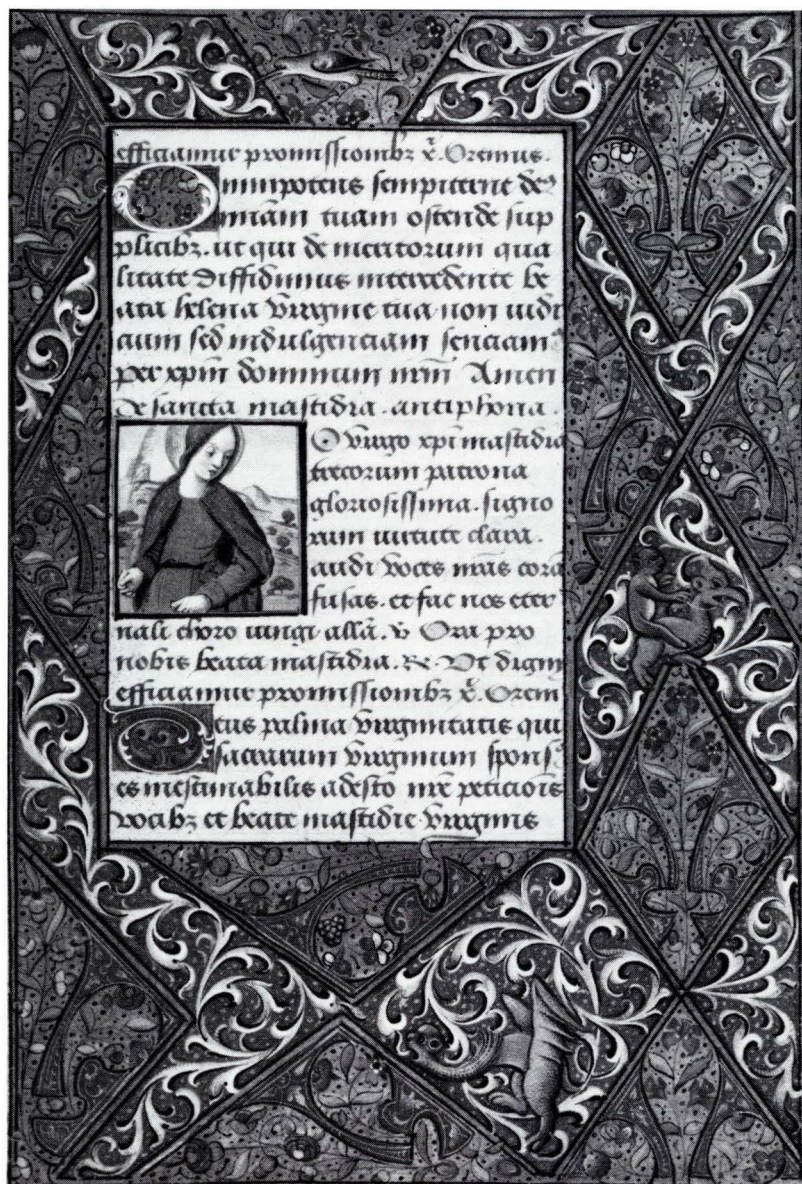 efficiamur promissionibz x̄. Oremus.
Omnipotens sempiterne de9
miām tuam ostende sup
plicibz. ut qui de meritorum qua
litate diffidimus intercedente be
ata helena virgine tua non iudi
cium sed indulgenciam senciam9
per xpm̄ dominum nrm̄ Amen
De sancta mastidia. antiphona.
O virgo xpi mastidia
trecorum patrona
gloriosissima. signo
rum virtute clara.
audi voces nrās corā
fusas. et fac nos eter
nali choro iungi allā. v̄ Ora pro
nobis beata mastidia. R. Vt digni
efficiamur promissionibz x̄. Orem
Deus palma virginitatis qui
sacrarum virginum spons9
es inestimabilis adesto nrē peticiois
vocibz et beate mastidie virginis